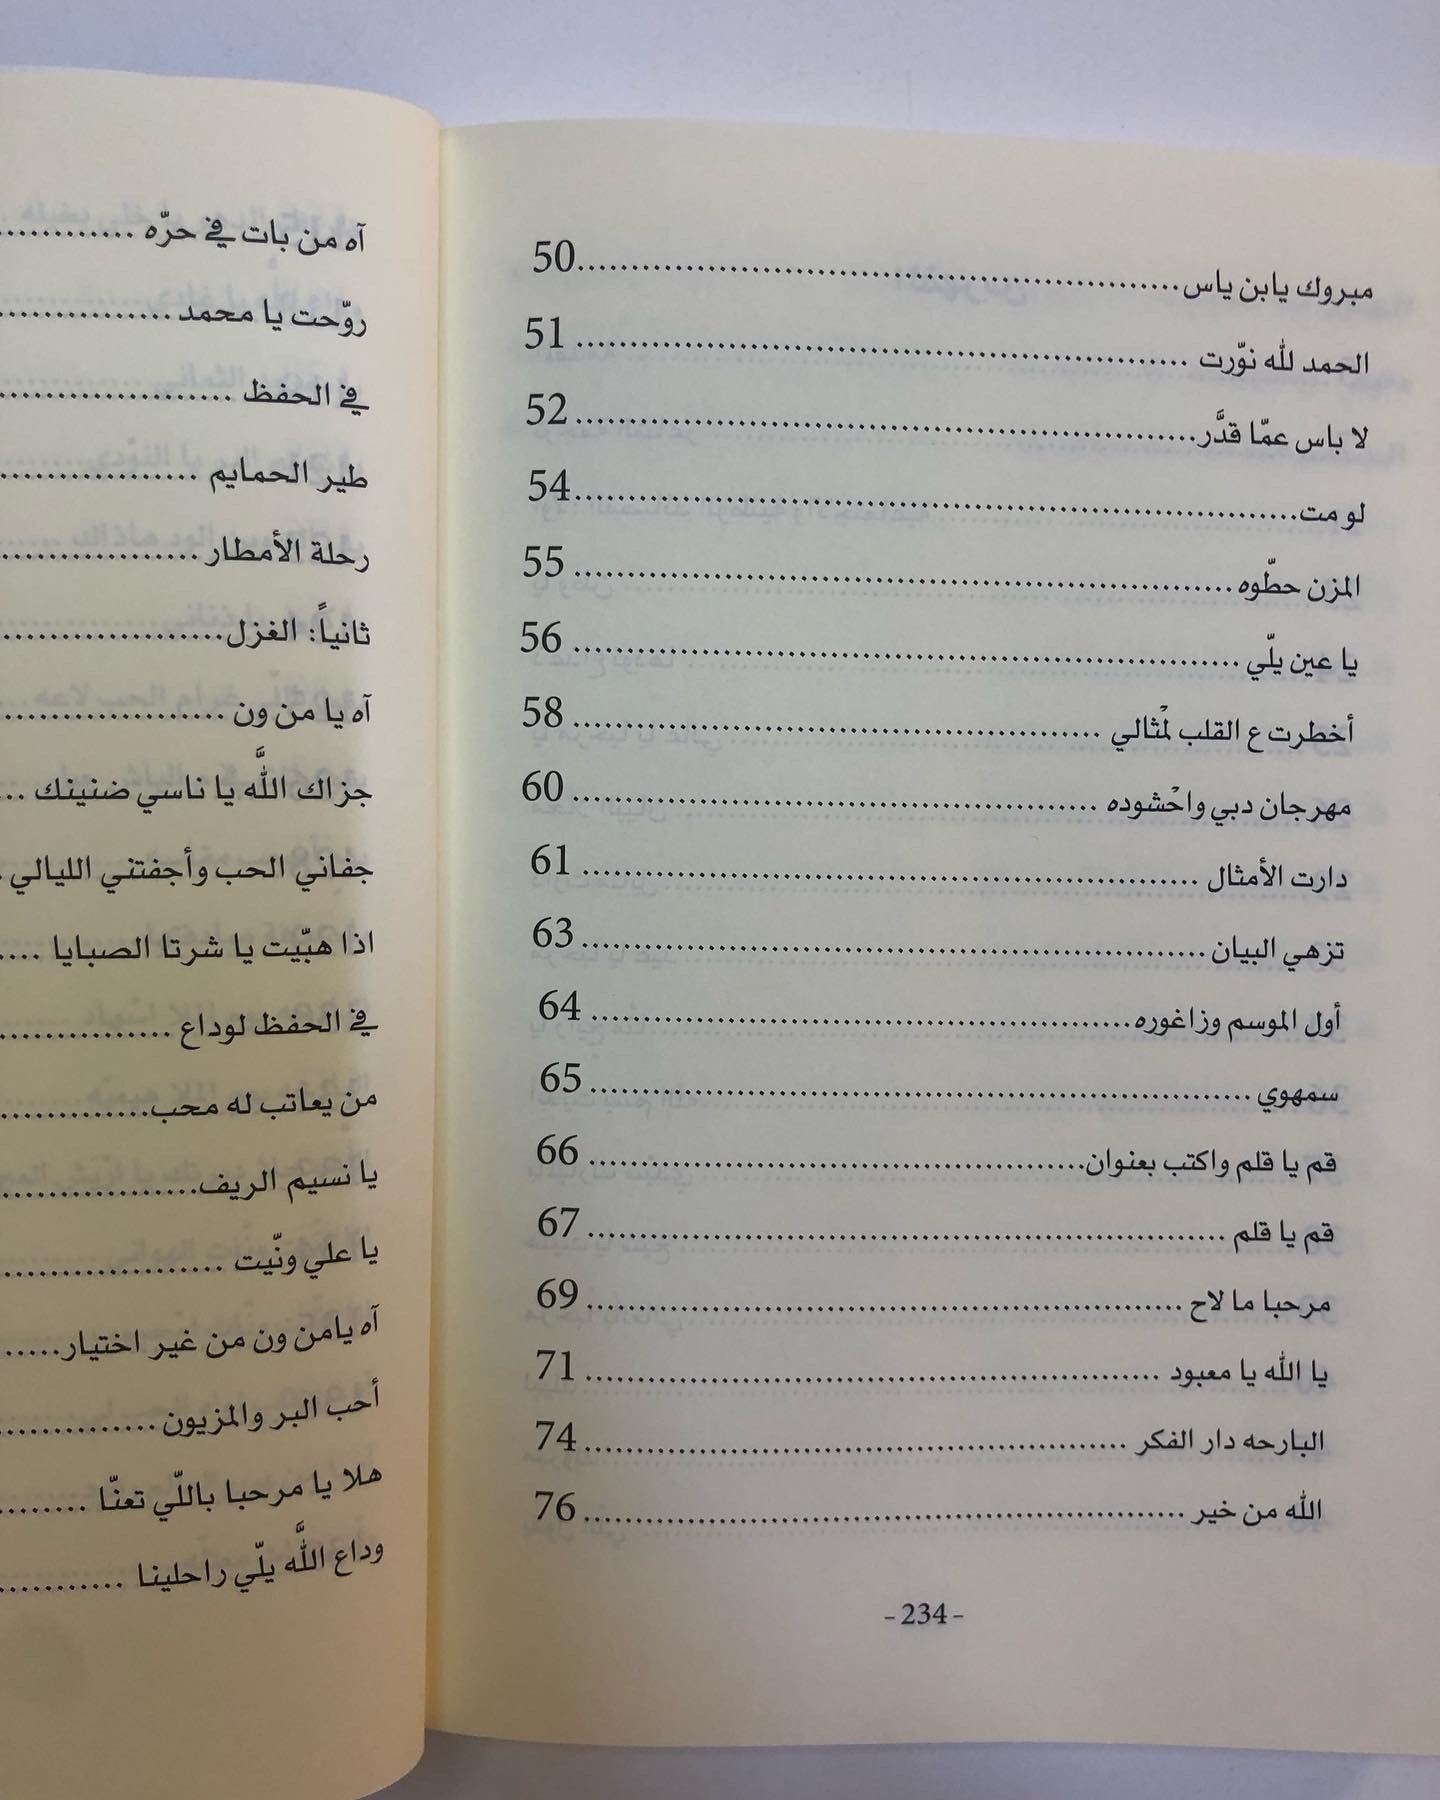 مبروك يابن ياس......................................................50
الحمد لله نوّرت ......................................................51
لا باس عمّا قدَّر......................................................52
لو مت......................................................54
المزن حطّوه......................................................55
يا عين يلّي......................................................56
أخطرت ع القلب لمْثالي ......................................................58
مهرجان دبي واحْشوده ......................................................60
دارت الأمثال ......................................................61
تزهي البيان......................................................63
أول الموسم وزاغوره......................................................64
سمهوي ......................................................65
قم يا قلم واكتب بعنوان......................................................66
قم يا قلم ......................................................67
مرحبا ما لاح ......................................................69
يا الله يا معبود ......................................................71
البارحه دار الفكر ......................................................74
الله من خير ......................................................76
-234-
آه من بات في حرّه ............
روّحت يا محمد .................
في الحفظ .....................
طير الحمايم ..................
رحلة الأمطار..................
ثانياً: الغزل....................
آه يا من ون ....................
جزاك اللَّه يا ناسي ضنينك ..
جفاني الحب وأجفتني الليالي .
اذا هبّيت يا شرتا الصبايا ....
في الحفظ لوداع ...............
من يعاتب له محب..............
يا نسيم الريف..................
يا علي ونّيت ....................
آه يامن ون من غير اختيار.....
أحب البر والمزيون..............
هلا يا مرحبا باللّي تعنّا ........
وداع اللَّه يلّي راحلينا ............